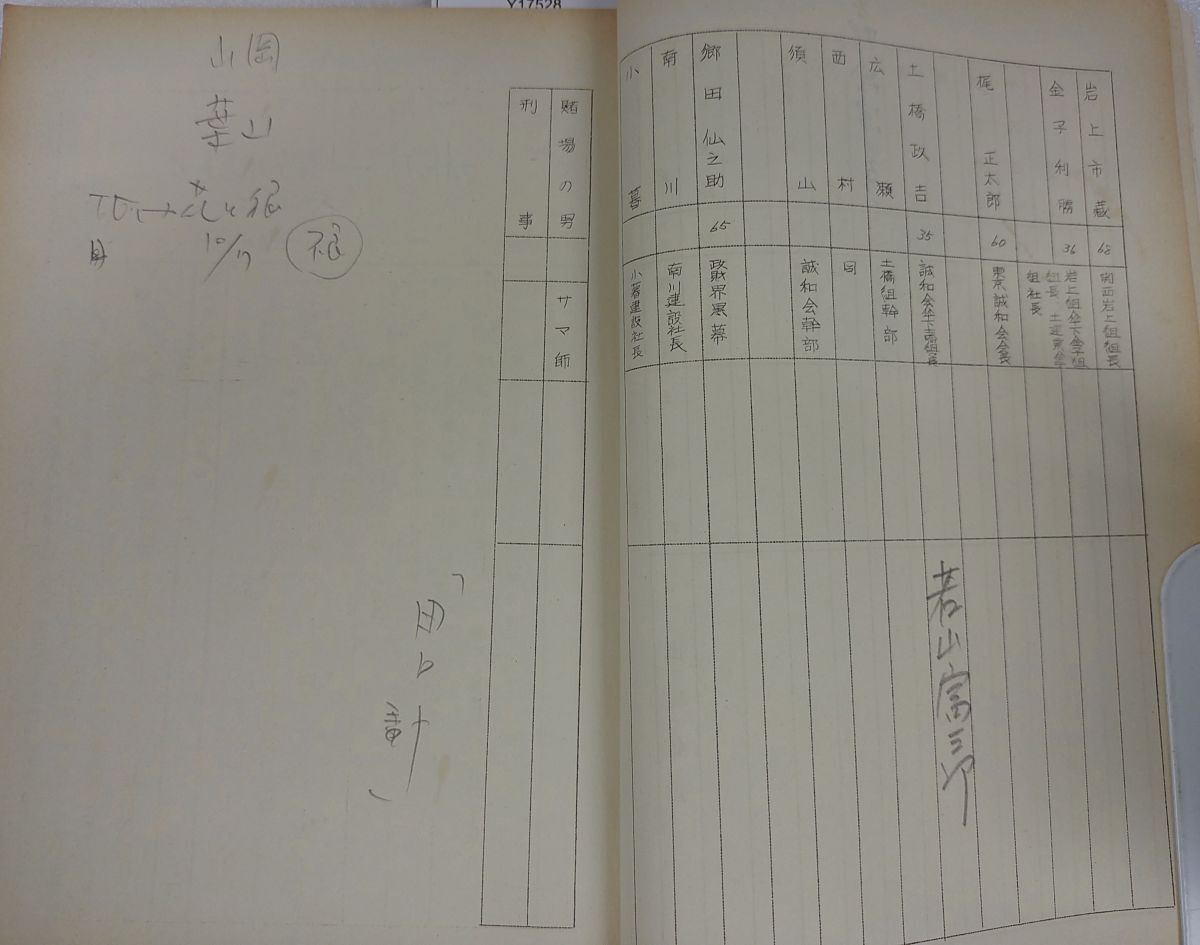 Y17528
岩上市蔵 68 関西岩上組組長
金子利勝 36 岩上組傘下金子組
組長、土運東金
組社長
梶 正太郎 60 東京誠和会会長
土橋政吉 35 誠和会傘下土橋組組長
若山富三郎
広瀬 土橋組幹部
西村 同
須山 誠和会幹部
郷田仙之助 65 政財界黒幕
南川 南川建設社長
小暮 小暮建設社長
賭場の男 サマ師
刑事
山岡
葉山
10/17